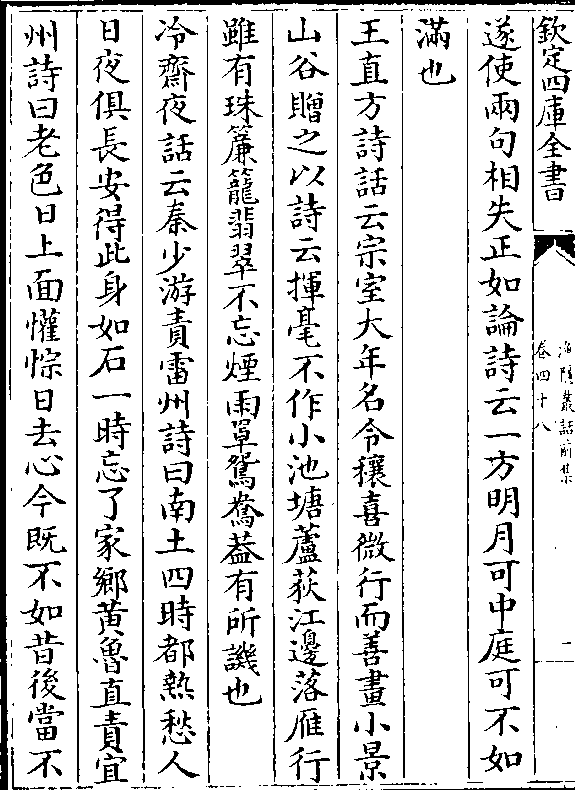 欽定四庫全書
漁隱叢話前集
卷四十八
遂使兩句相失正如論詩云一方明月可中庭可不如
滿也
王直方詩話云宗室大年名令穰喜微行而善畫小景
山谷贈之以詩云揮毫不作小池塘蘆荻江邊落雁行
雖有珠簾籠翡翠不忘煙雨罩鴛鴦葢有所譏也
冷齋夜話云秦少游責雷州詩曰南土四時都熱愁人
日夜俱長安得此身如石一時忘了家鄉黄魯直責宜
州詩曰老色日上面懽悰日去心今既不如昔後當不